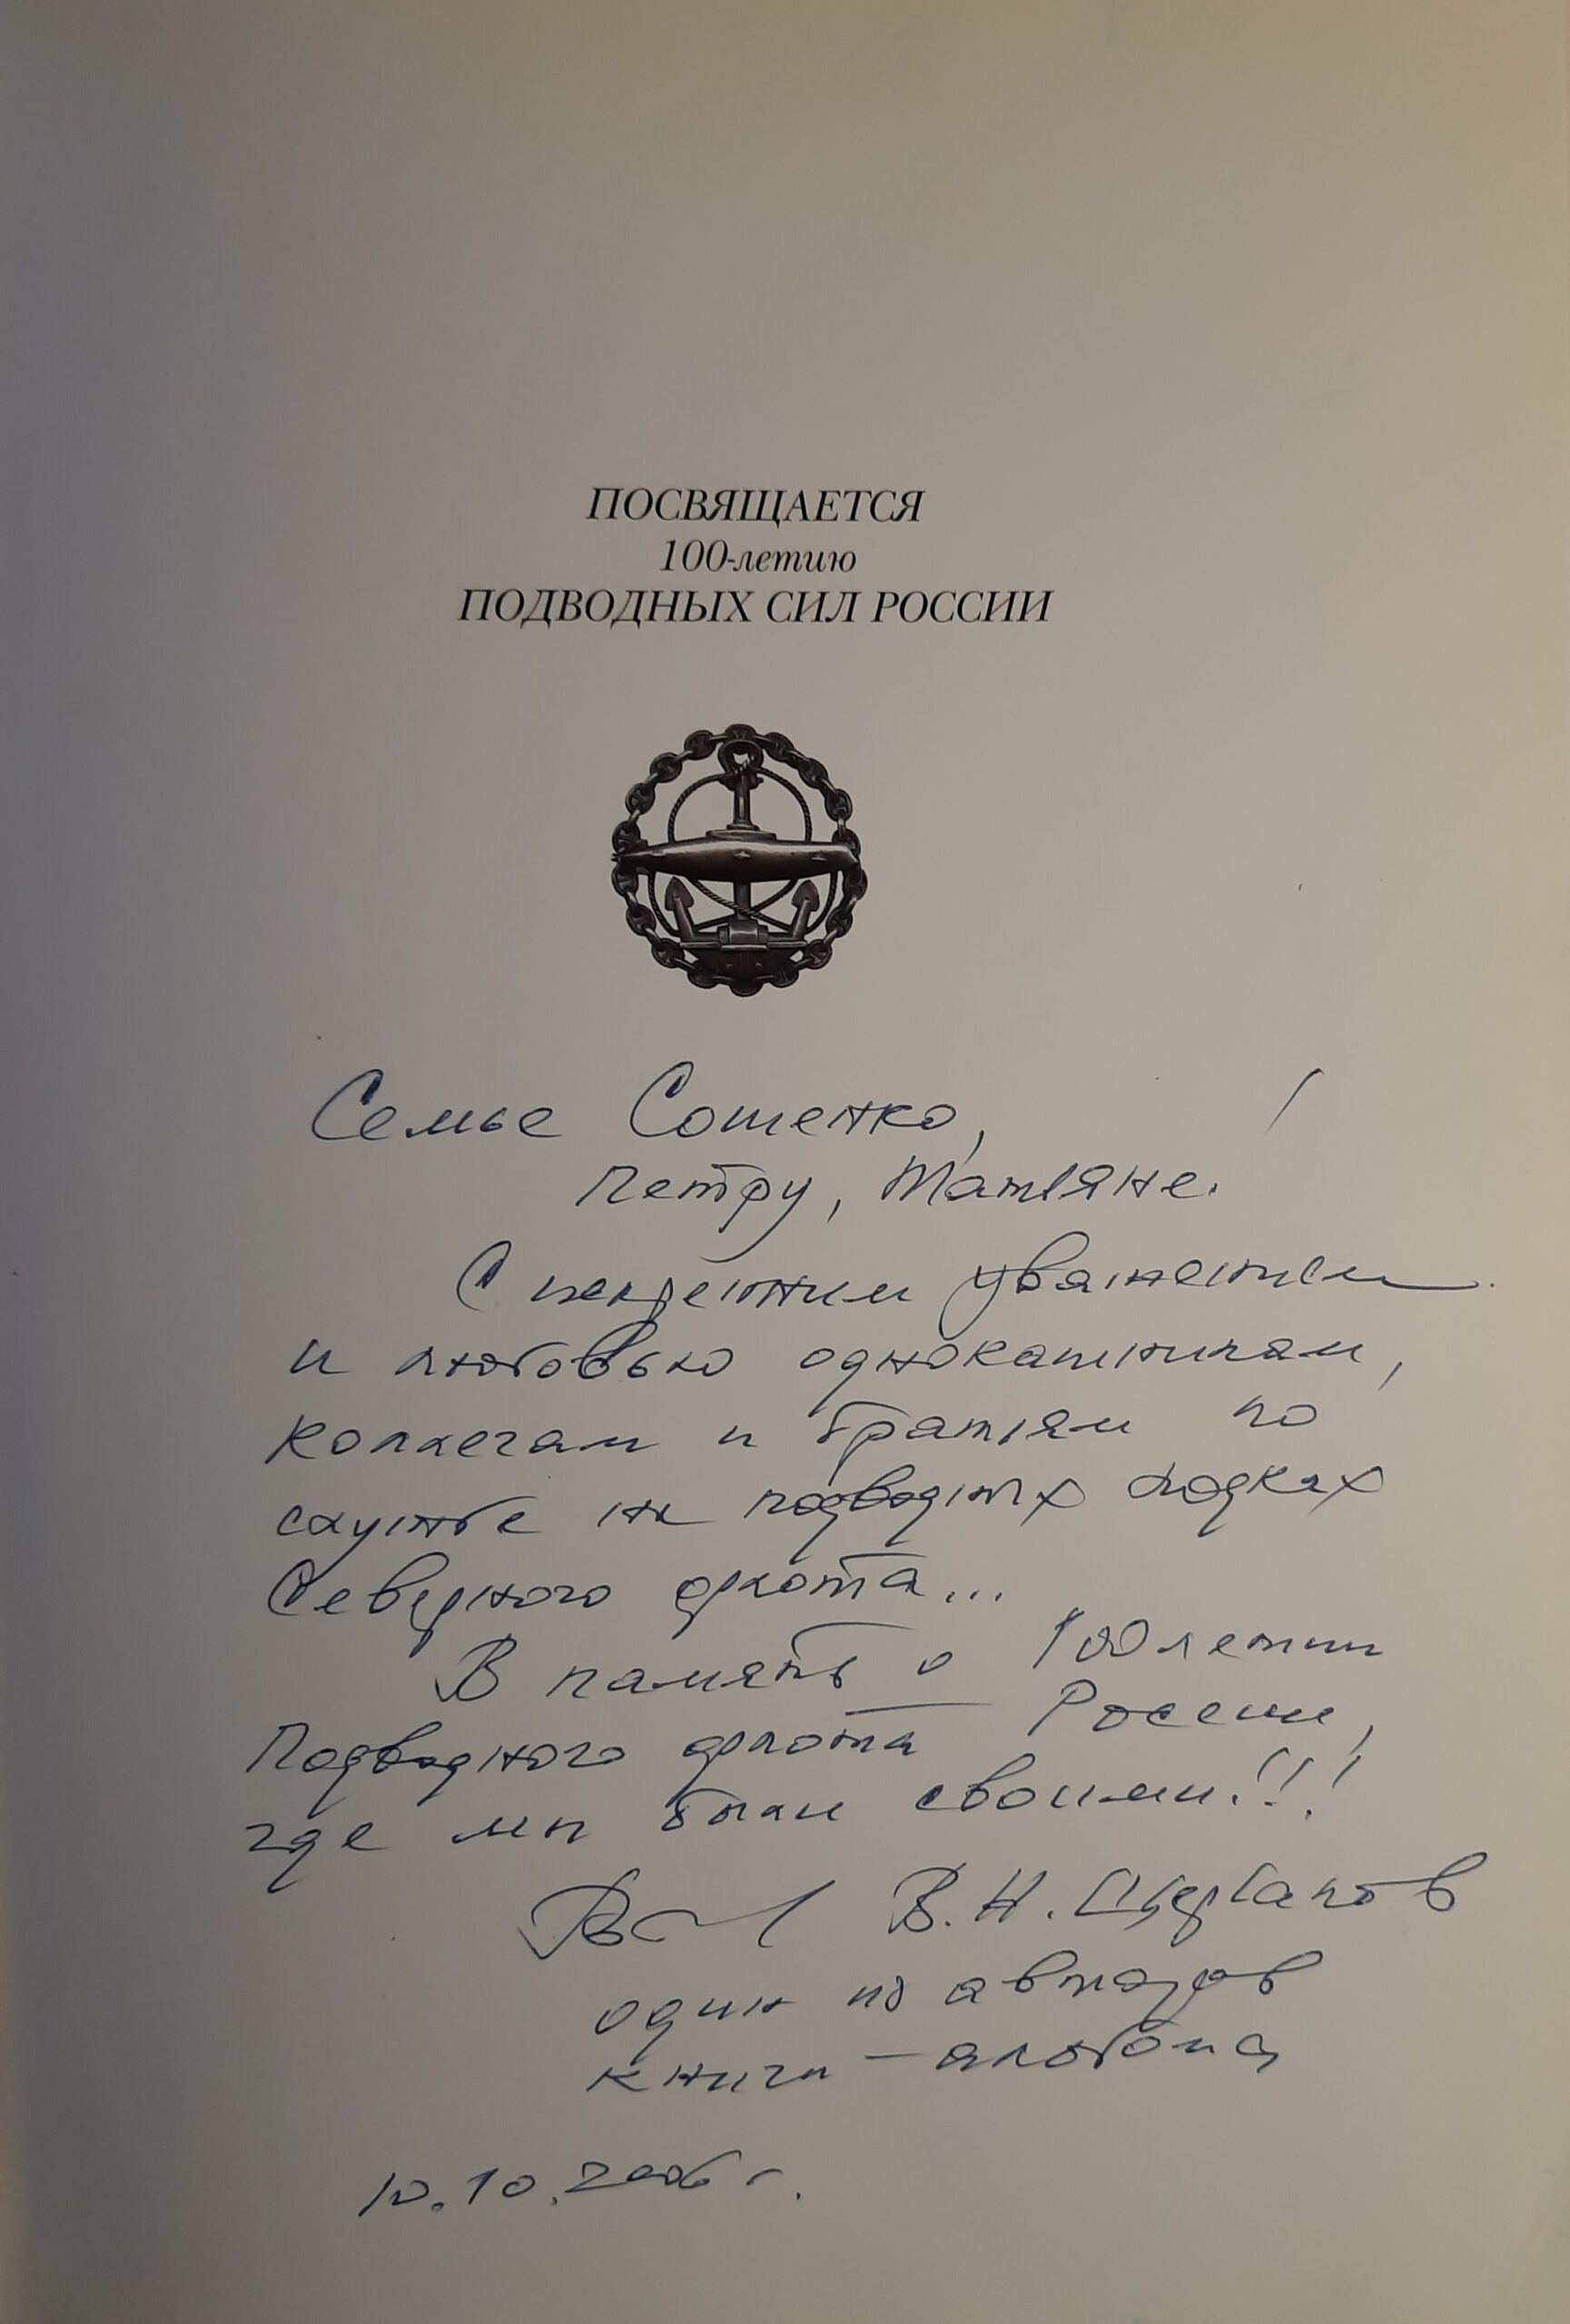 ПОСВЯЩАЕТСЯ
100-летию
ПОДВОДНЫХ СИЛ РОССИИ
Семье Сотенко,
Петру, Татьяне!
С искренним уважением
и любовью однокашникам,
коллегам и братьям по
службе на подводных лодках
Северного флота...
В память о 100летии
Подводного флота России,
где мы были своими!!!
В.Н. Щербаков
один из авторов
книги-альбома
10.10.2006 г.